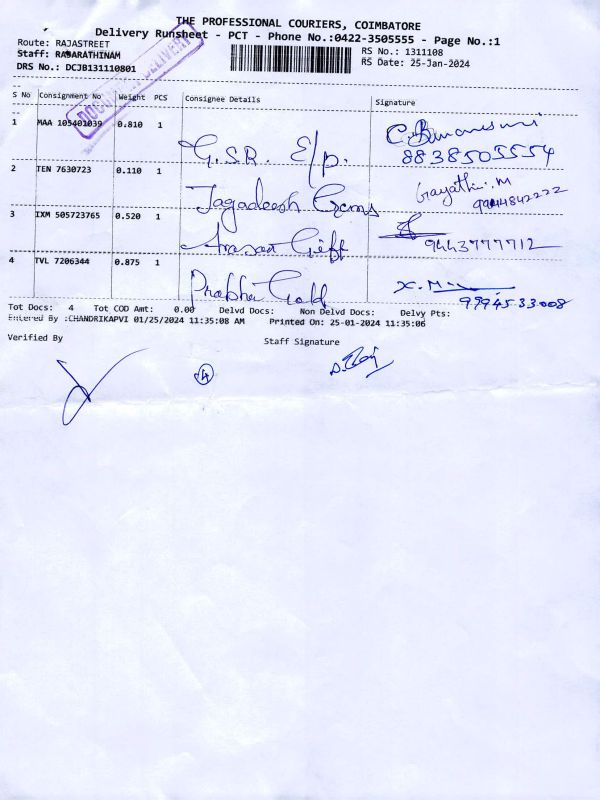 THE PROFESSIONAL COURIERS, COIMBATORE
Delivery Runsheet - PCT - Phone No.:0422-3505555 - Page No.:1
Route: RAJASTREET
RS No.: 1311108
Staff: RABARATHINAM
RS Date: 25-Jan-2024
DRS No.: DCJB131110801
DOCUMENT DELIVERY
S No Consignment No Weight PCS Consignee Details Signature
1 MAA 105401039 0.810 1 G.S.R. E/p.
8838505554
2 TEN 7630723 0.110 1 Jagadeesh Gems Gayathri.M
9944842222
3 IXM 505723765 0.520 1 Gift
9443777712
4 TVL 7206344 0.875 1 Prabha Gold
99945.33008
Tot Docs: 4 Tot COD Amt: 0.00 Delvd Docs: Non Delvd Docs: Delvy Pts:
Entered By :CHANDRIKAPVI 01/25/2024 11:35:08 AM Printed On: 25-01-2024 11:35:06
Verified By
Staff Signature
4